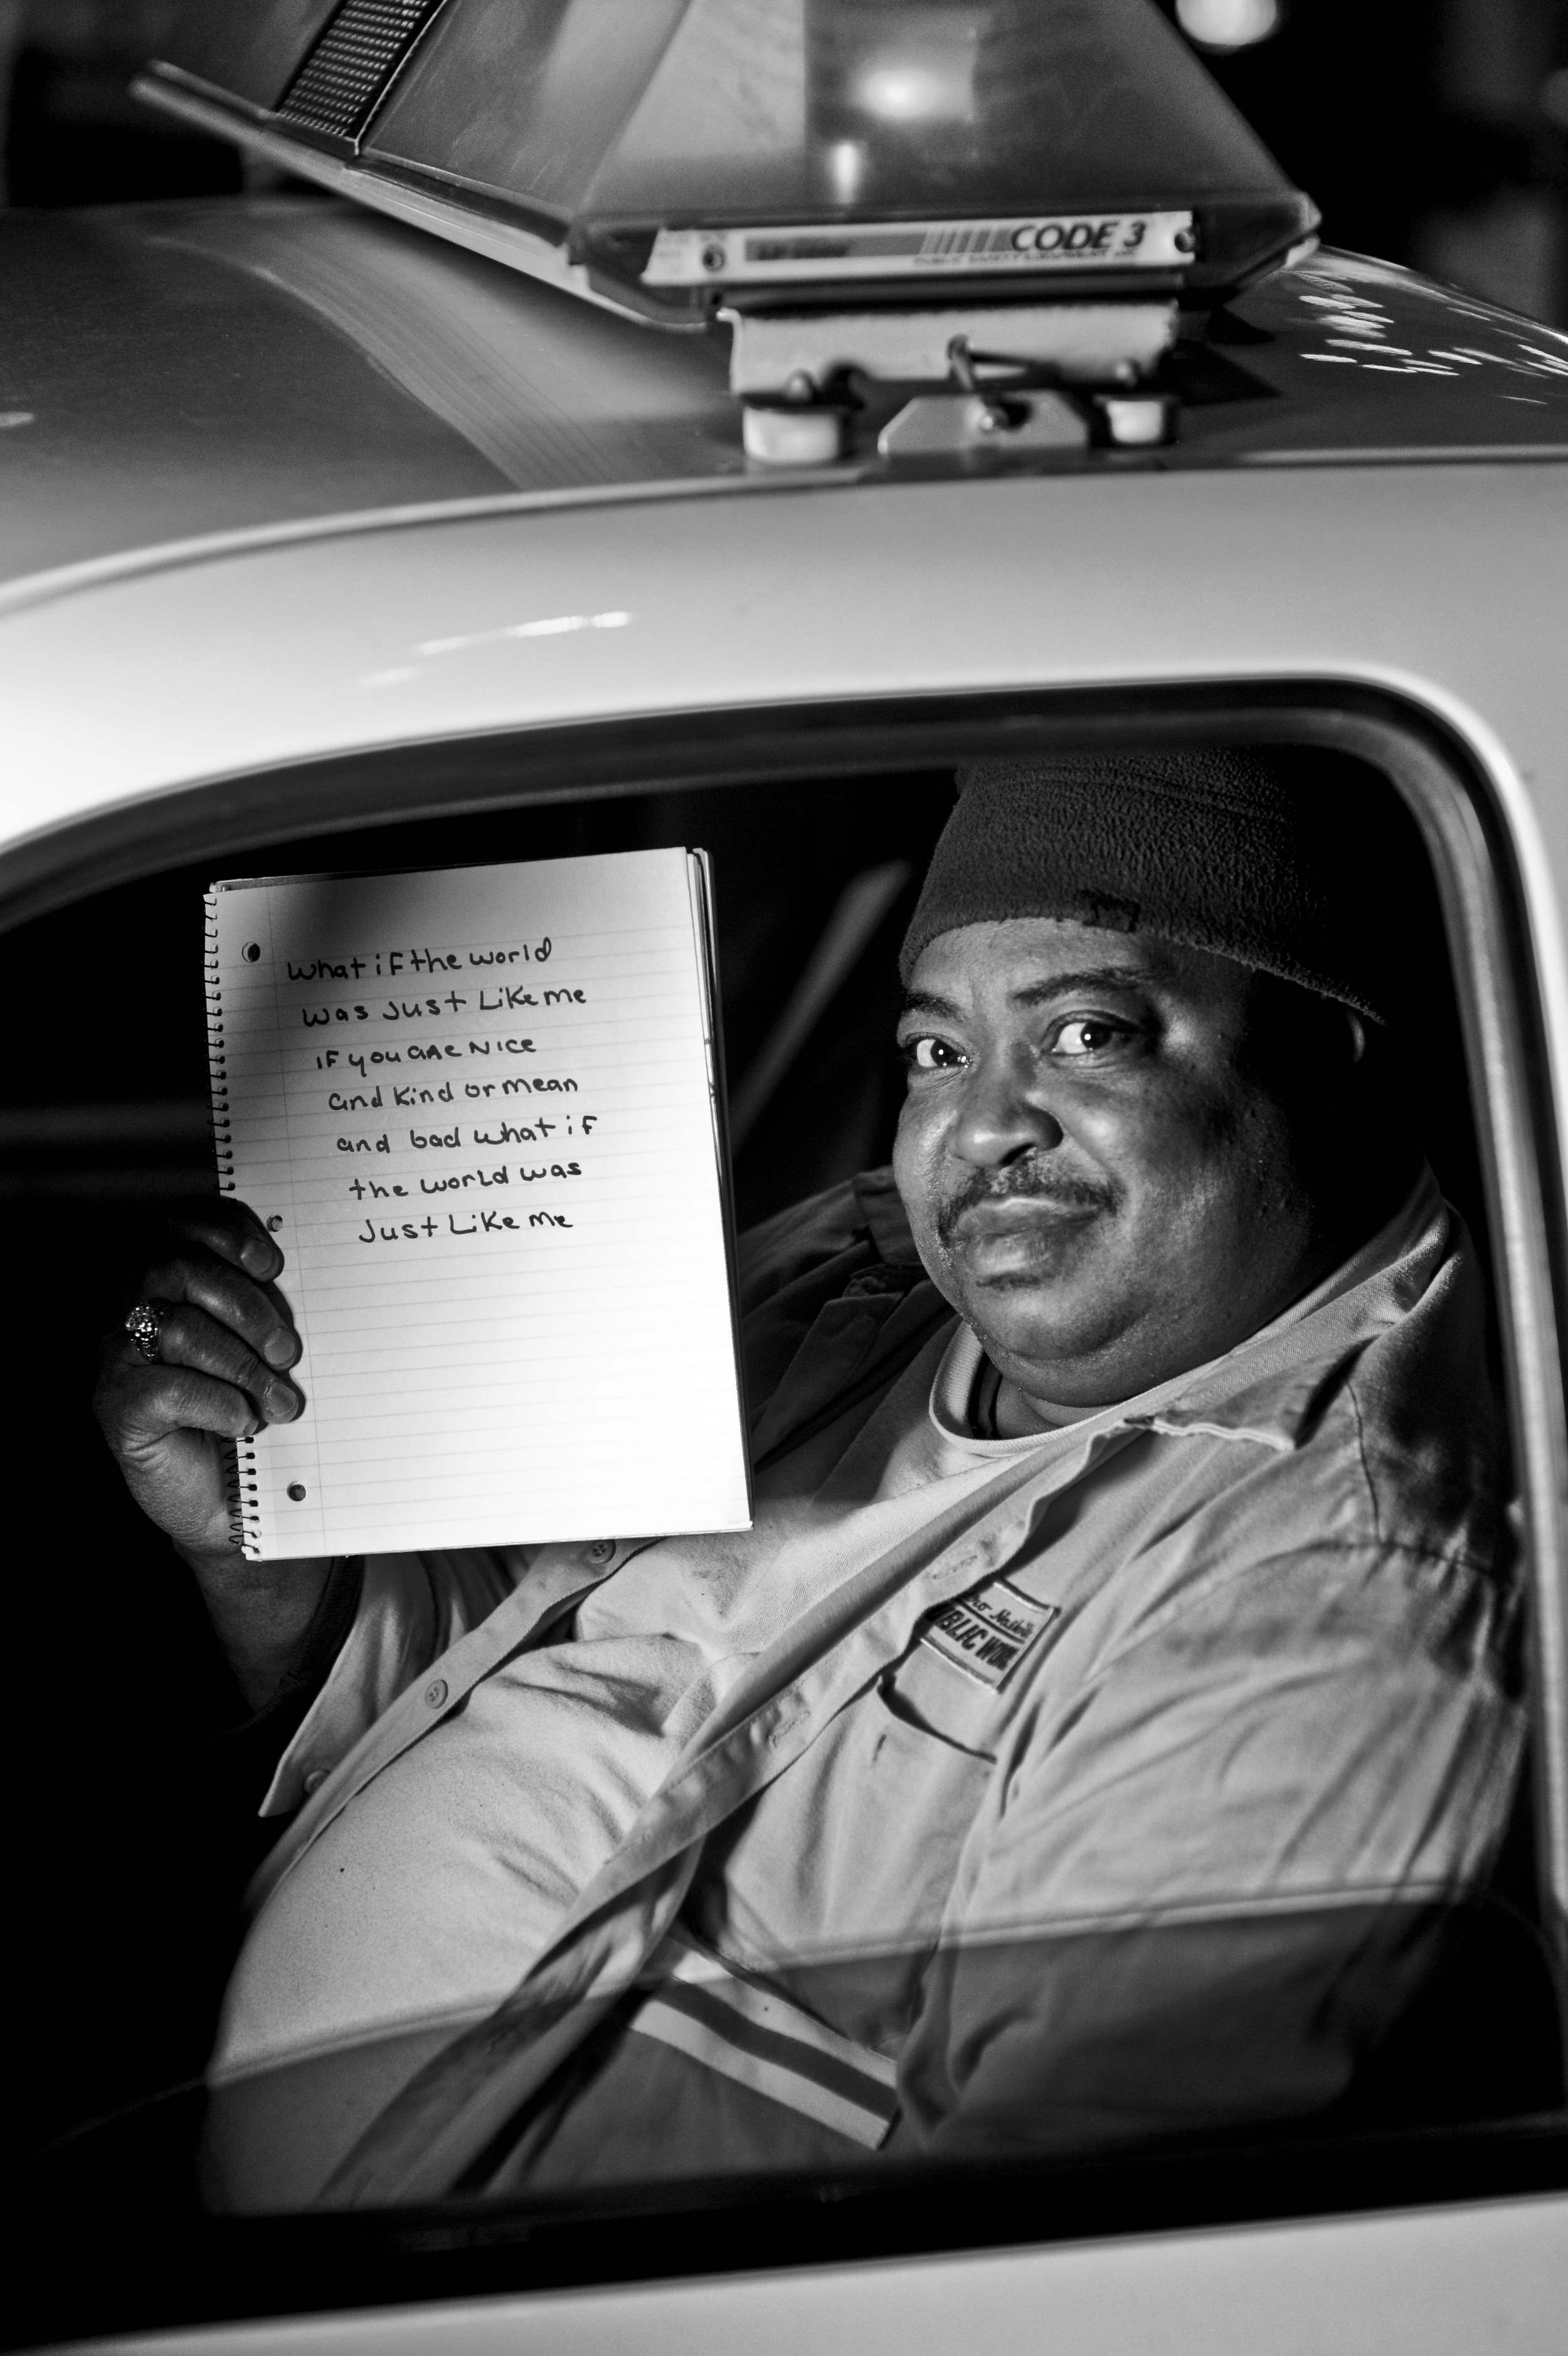 CODE 3
What if the world
was Just Like me
if you are Nice
and Kind or mean
and bad what if
the world was
Just Like me